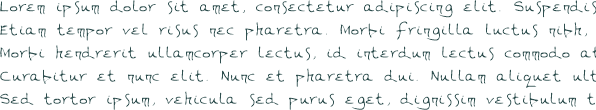 Lorem ipsum dolor sit amet, consectetur adipiscing elit. Suspendis
Etiam tempor vel risus nec pharetra. Morbi fringilla luctus nibh,
Morbi hendrerit ullamcorper lectus, id interdum lectus commodo at
Curabitur et nunc elit. Nunc et pharetra dui. Nullam aliquet ult
Sed tortor ipsum, vehicula sed purus eget, dignissim vestibulum t